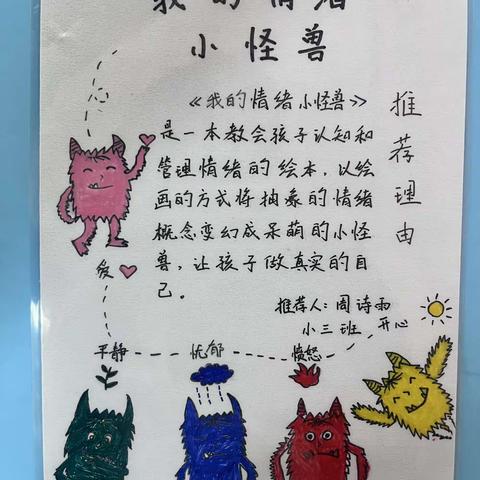 我的情绪
小怪兽
推荐理由
《我的情绪小怪兽》
是一本教会孩子认知和
管理情绪的绘本，以绘
画的方式将抽象的情绪
概念变幻成呆萌的小怪
兽，让孩子做真实的自
己。
推荐人：周诗雨
小三班
开心
爱
平静
忧郁
愤怒